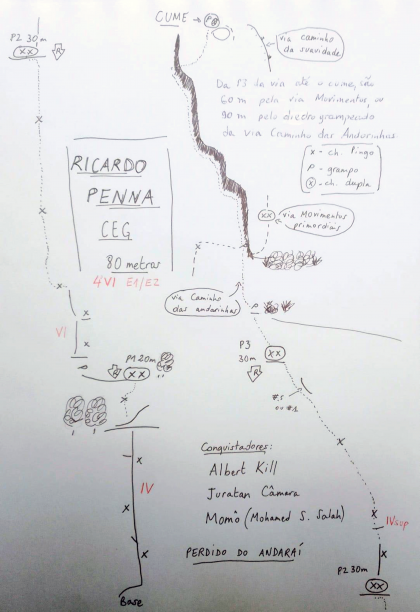 CUME → P
via caminho da suavidade
P2 30m
XX
R
Da P3 da via até o cume, são
60 m pela via Movimentos, ou
90 m pelo diedro grampeado
da via Caminho das Andorinhas.
x - ch. Pingo
P - grampo
ⓧ - ch. dupla
RICARDO
PENNA
CEG
80 metros
4º VI E1/E2
XX
via Movimentos
primordiais
via Caminho
das andorinhas
P
VI
P1 20m
R
XX
P3
30m
XX
R
#.5
ou #1
IV
Conquistadores:
Albert Kill
Juratan Câmara
Momô (Mohamed S. Salah)
PERDIDO DO ANDARAÍ
IVsup
P2 30m
XX
Base